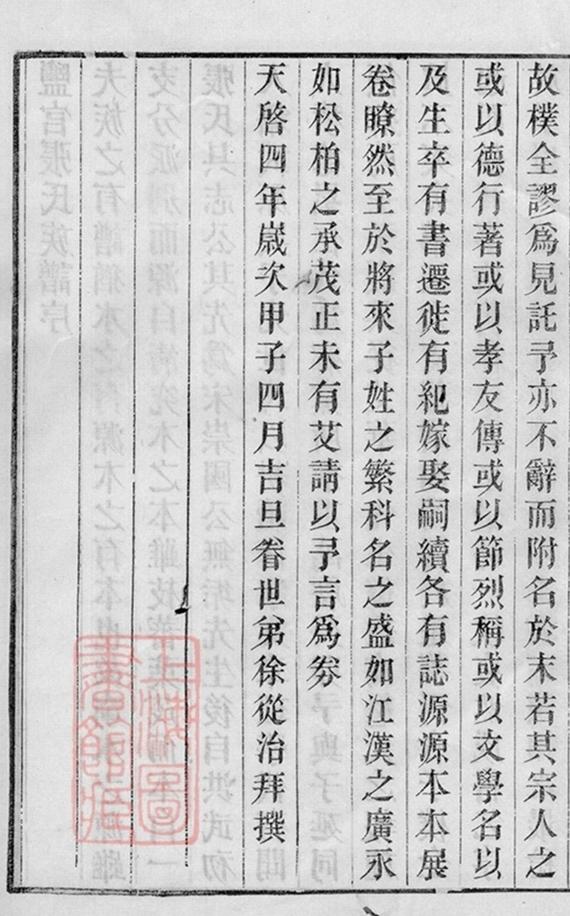 故樸全謬爲見託予亦不辭而附名於末若其宗人之
或以德行著或以孝友傳或以節烈稱或以文學名以
及生卒有書遷徙有紀嫁娶嗣續各有誌源源本本展
卷瞭然至於將來子姓之繁科名之盛如江漢之廣永
如松柏之承茂正未有艾請以予言爲券
天啓四年歲次甲子四月吉旦眷世弟徐從治拜撰